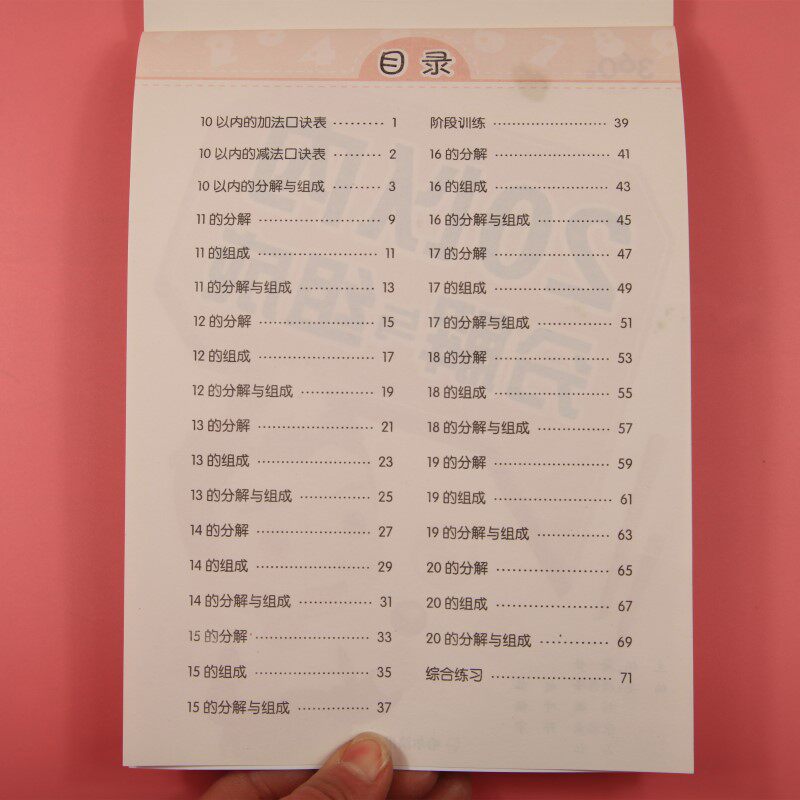 目录
10 以内的加法口诀表 ········· 1
10 以内的减法口诀表 ········ 2
10 以内的分解与组成 ········ 3
11 的分解 ···················· 9
11 的组成 ···················· 11
11 的分解与组成 ············ 13
12 的分解 ··················· 15
12 的组成 ··················· 17
12 的分解与组成 ············ 19
13 的分解 ··················· 21
13 的组成 ··················· 23
13 的分解与组成 ············ 25
14 的分解 ··················· 27
14 的组成 ··················· 29
14 的分解与组成 ············ 31
15 的分解 ··················· 33
15 的组成 ··················· 35
15 的分解与组成 ············ 37
阶段训练 ···················· 39
16 的分解 ···················· 41
16 的组成 ···················· 43
16 的分解与组成 ············ 45
17 的分解 ···················· 47
17 的组成 ···················· 49
17 的分解与组成 ············ 51
18 的分解 ···················· 53
18 的组成 ···················· 55
18 的分解与组成 ············ 57
19 的分解 ···················· 59
19 的组成 ···················· 61
19 的分解与组成 ············ 63
20 的分解 ··················· 65
20 的组成 ··················· 67
20 的分解与组成 ············ 69
综合练习 ····················· 71